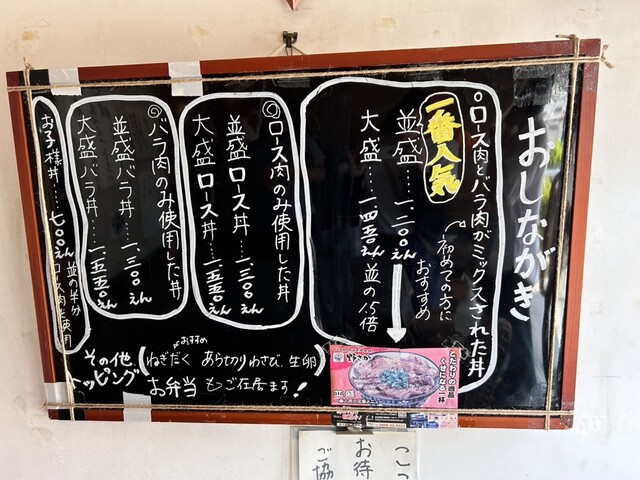 おしながき
○ロース肉とバラ肉がミックスされた丼
一番人気
初めての方に
おすすめ
並盛‥‥一、二〇〇えん
大盛‥‥一、四五〇えん 並の1.5倍
◎ロース肉のみ使用した丼
並盛ロース丼‥‥一、三〇〇えん
大盛ロース丼‥‥一、五五〇えん
◎バラ肉のみ使用した丼
並盛バラ丼‥‥一、三〇〇えん
大盛バラ丼‥‥一、五五〇えん
お子様丼‥‥七〇〇えん
並の半分
ロース肉を使用
その他、トッピング
おすすめ
(ねぎだく あらぎりわさび、生卵)
お弁当もご在居ます!
こだわりの逸品
くせになる一杯
並盛
こ
お待
ご協